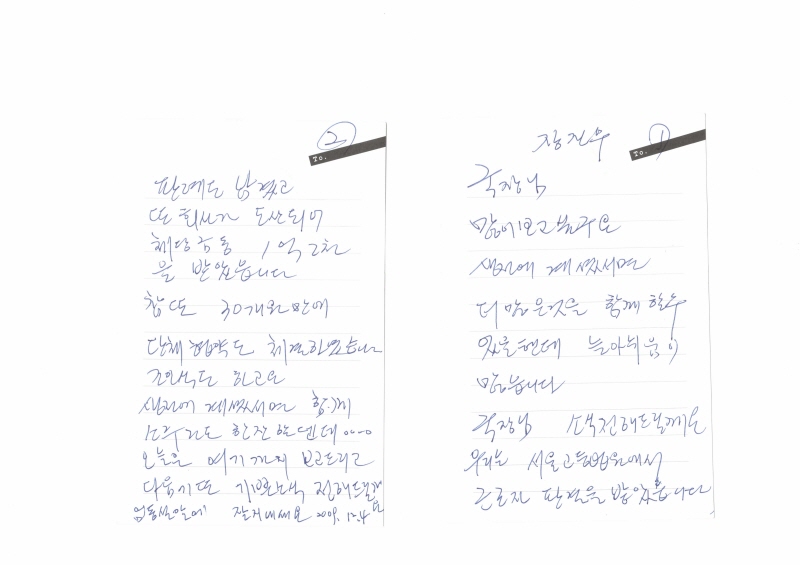 장진수
TO. 1
국장님
많이 보고 싶구요
생전에 계셨서면
더 많은것을 함께 할수
있을텐데
많습니다
국장님 소식전해드릴께요
우리는 서울고등법원에서
근로자 판결을 받았습니다
2
TO.
판례도 남겼고
또 회사가 도산되어
체당금 등 1억 2천
을 받았습니다
참 또 30개월만에
단체협약도 체결하였습니다
조인식도 하고요
생전에 계셨서면 함께
소주라도 한잔 할텐데
오늘은 여기까지 보고드리고
다음기또 기쁜소식 전해드릴게
요
엄동설안에 잘지내세요 2009. 12. 4